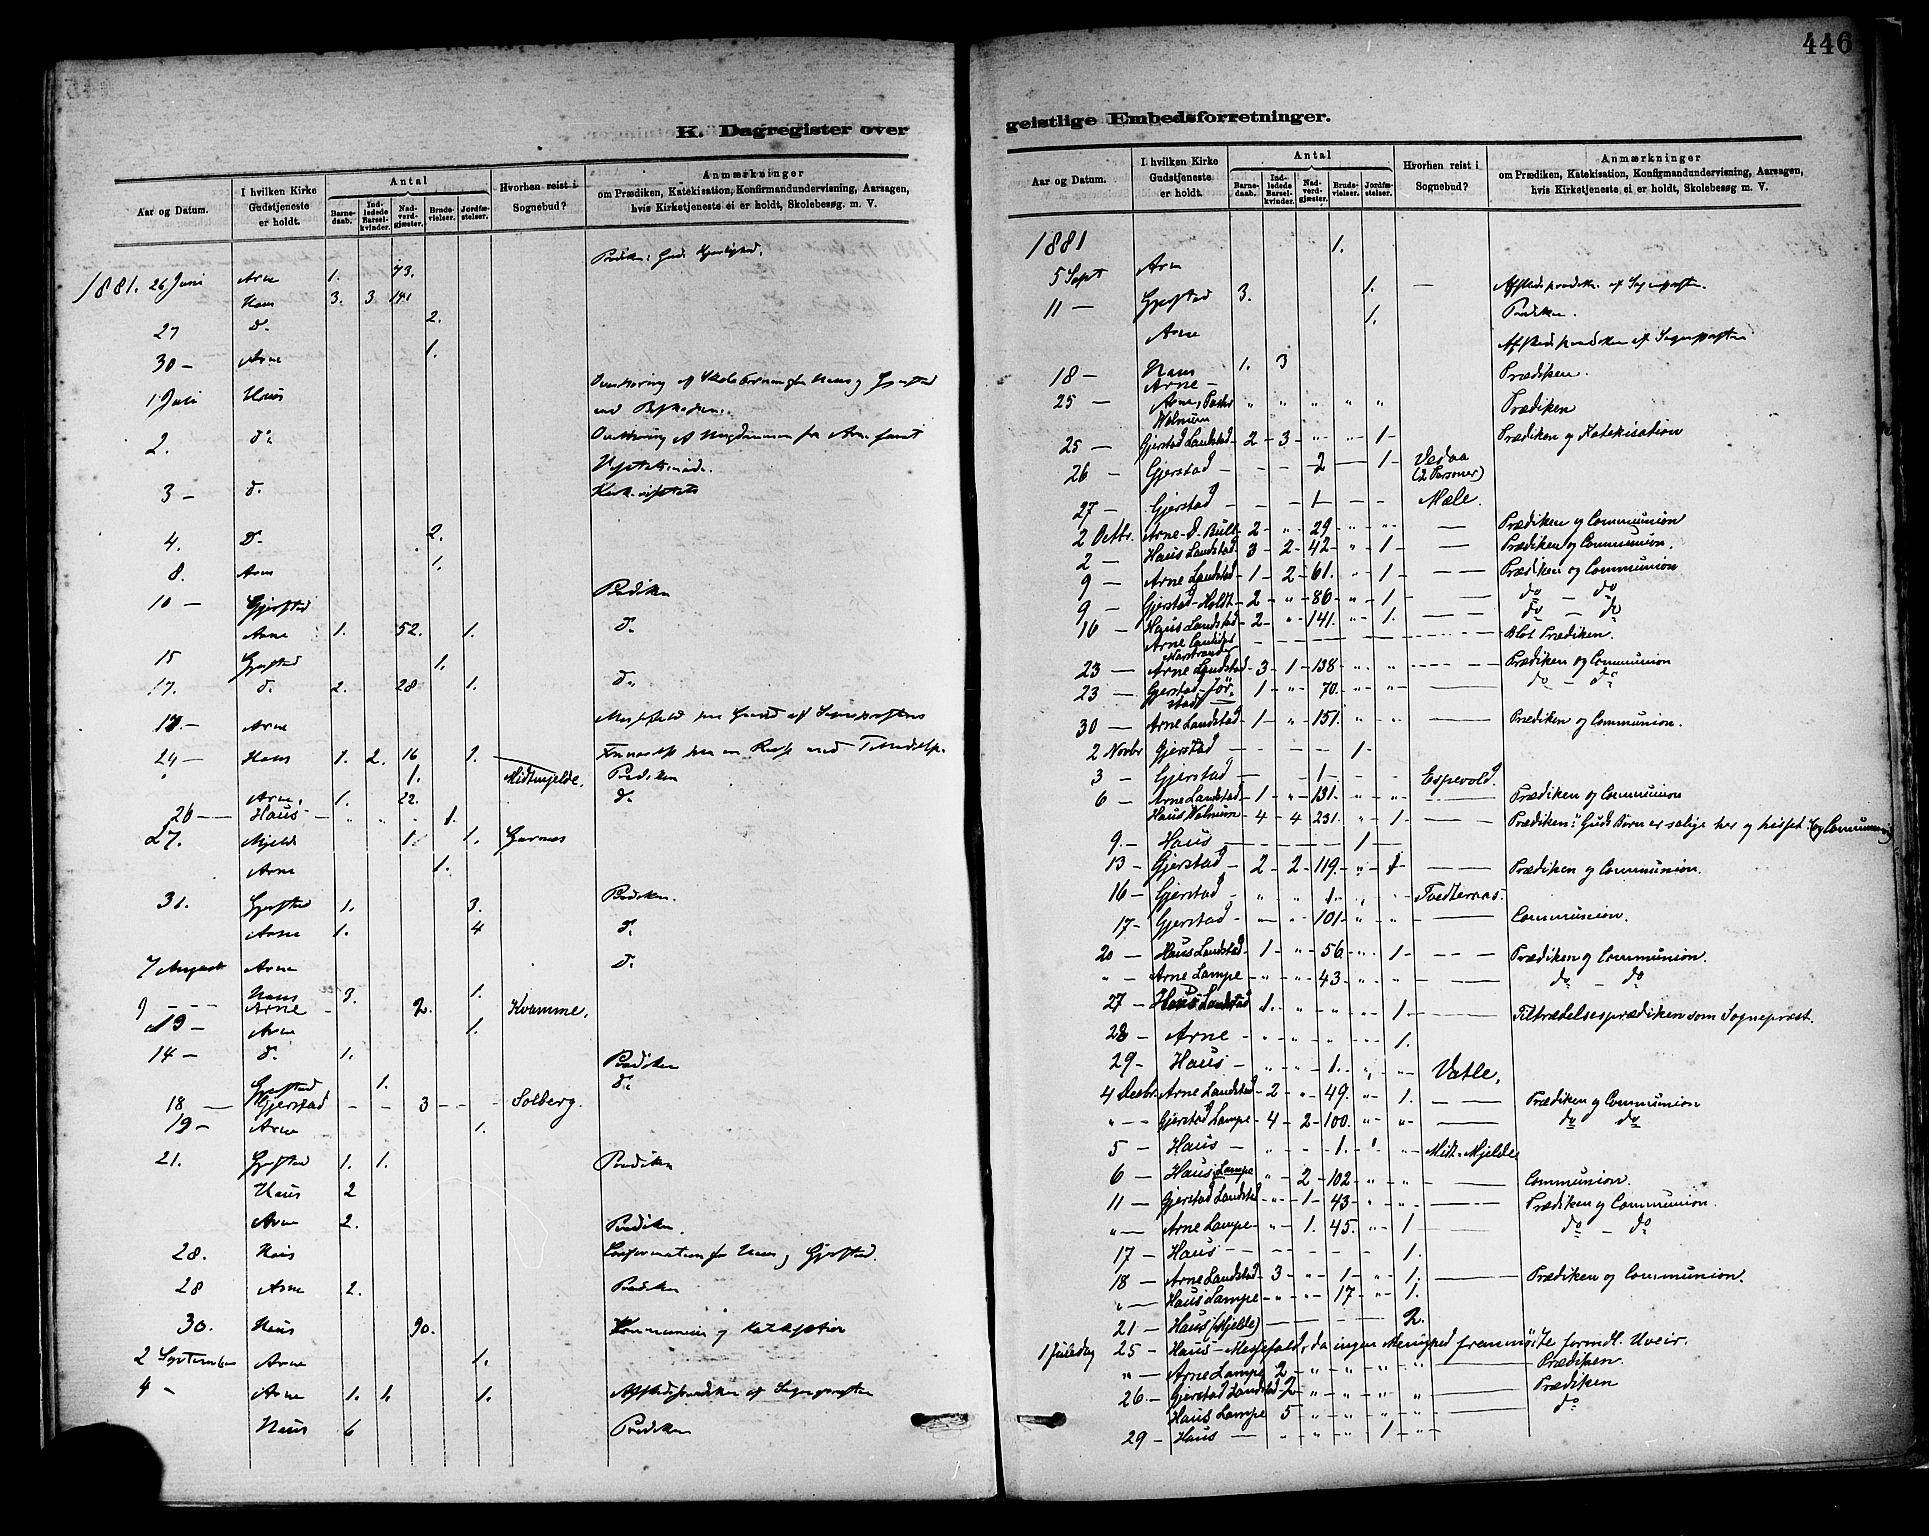 446
K. Dagregister over
Aar og Datum. I hvilken Kirke Gudstjeneste er holdt. Antal Barnedaab. Indledede Barselkvinder. Nadverdgjæster. Brudevielser. Jordfæstelser. Hvorhen reist i Sognebud? Anmærkninger om Prædiken, Katekisation, Konfirmandundervisning, Aarsagen, hvis Kirketjeneste ei er holdt, Skolebesøg m. V.
1881. 26 Juni Arne 1. 43.
Haus 3. 3 141
27 do 2.
30 – Arne 1.
1 Juli Haus
2. do
3 – do
4. Do 2.
8. Arne 1.
10 – Gjerstad Prædiken
Arne 1. 52. 1. do
15 Gjerstad 1.
17. do 2. 28 1. do
Arne
24 – Haus 1. 2. 16 1.
" 1. Midtmjelde. Prædiken
Arne, 1. 22. do
26 – Haus – " " " 1.
27. Mjelde 1. 1. Garnes
Arne 1.
31. Gjerstad 1. 3. Prædiken.
Arne 1. 4 do
7 August Arne do
Haus 3. 1.
9 – Arne – 2. Kvamme.
Arne 1.
14 – do 1. Prædiken
Gjerstad 1. do
18 – Gjerstad – – 3 – – Solberg.
19 – Arne 1.
21. Gjerstad 1. 1. Prædiken
Haus 2
Arne 2. Prædiken.
28. Haus Confirmation for Haus og Gjerstad.
28 Arne 2. Prædiken
30. Haus 90.
2 September Arne 1.
4 – Arne 1. 1. 1. Afskedsprædiken af Sognepresten
Haus 6 Prædiken
geistlige Embedsforretninger.
Aar og Datum. I hvilken Kirke Gudstjeneste er holdt. Antal Barnedaab. Indledede Barselkvinder. Nadverdgjæster. Brudevielser. Jordfæstelser. Hvorhen reist i Sognebud? Anmærkninger om Prædiken, Katekisation, Konfirmandundervisning, Aarsagen, hvis Kirketjeneste ei er holdt, Skolebesøg m. V.
1881
5 Sept Arne 1.
11 – Gjerstad 3. 1. – Afskedsprædiken af Sognepresten.
Arne 1. Prædiken.
18 – Haus 1. 3 Afskedsprædiken af Sognepresten
Arne – Prædiken.
25 – Arne, Pastor Walnum " " " " " Prædiken
25 – Gjerstad Landstad – 2 – 3 – " – " – 1 – Prædiken og Katekisation
26 – Gjerstad – – – 2 – – 1 – Vedaa (2 Personer)
27 – Gjerstad – – – 1 – – – Mæle.
2 Octbr. Arne – D. Bull – 2 – " – 29 – " – " – – Prædiken og Communion
2 – Haus Landstad – 3 – 2 – 42 – " – 1 – – Prædiken og Communion.
9 – Arne Landstad – 1 – 2 – 61. – " – 1 – – Prædiken og Communion
9 – Gjerstad – Holdt – 2 – " – 86 – " – 1 – – do – do
16 – Haus Landstad – 2 – " – 141. – " – 1. – – do – do
Arne – – – – – – – Blot Prædiken.
23 – Arne Landstad – 3 – 1 – 138 – " – " – – Prædiken og Communion
23 – Gjerstad – Jørstad – 1 – " – 70. – " – " – – do – do
30 – Arne Landstad – 1 – " – 151. – " – " – – Prædiken og Communion.
2 Novbr Gjerstad – – – – 1 –
3 – Gjerstad – – – 1 – – – Espevold.
6 – Arne Landstad – 1 – " – 131. – " – " – – Prædiken og Communion
Haus Walnum – 4 – 4 – 231. – " – 1 – – Prædiken: "Guds Børn er salige her og hisset" (og Communion)
9. – Haus – – – – 1 –
13 – Gjerstad – 2 – 2 – 119. – " – 1 – – Prædiken og Communion.
16 – Gjerstad – " – " – 1. – " – " – Tvedternæs.
17 – Gjerstad – " – " – 101. – " – " – – Communion.
20 – Haus Landstad – 1 – " – 56 – " – 1 – – Prædiken og Communion.
" – Arne Lampe – " – " – 43 – " – " – – do – do
27 – Haus Landstad – 1. – " – " – " – 1. – – Tiltrædelsesprædiken som Sognepræst.
28 – Arne – " – " – " – " – 1.
29 – Haus – " – " – 1. – " – " – Vatle.
4 Decbr. Arne Landstad – 2 – " – 49. – " – 1. – – Prædiken og Communion
" – Gjerstad Lampe – 4 – 2 – 100. – " – " – – do do
5 – Haus – " – " – 1. – " – " – Midt-Mjelde
6 – Haus Lampe – " – 2 – 102 – " – " – – Communion.
11 – Gjerstad Landstad – " – 1 – 43 – " – " – – Prædiken og Communion.
" – Arne Lampe – " – 1. – 45. – " – 1 – – do – do
17 – Haus – – – – – 1.
18 – Arne Landstad – 3 – " – 1 – " – 1. – – Prædiken og Communion.
" – Haus Lampe – " – " – 17 – " – 1.
21 – Haus (Mjelde) – – – – 2.
1 Juledag 25 – Haus – Messefald, da ingen Menighed fremmødte formdl. Uveir.
" – Arne Lampe 2 – " – " – " – " – – Prædiken.
26 – Gjerstad Landstad – 2 – " – " – " – " – – Prædiken
Haus Lampe 5 – " – " – " – " – – do
29 – Haus – " – " – " – 1 –